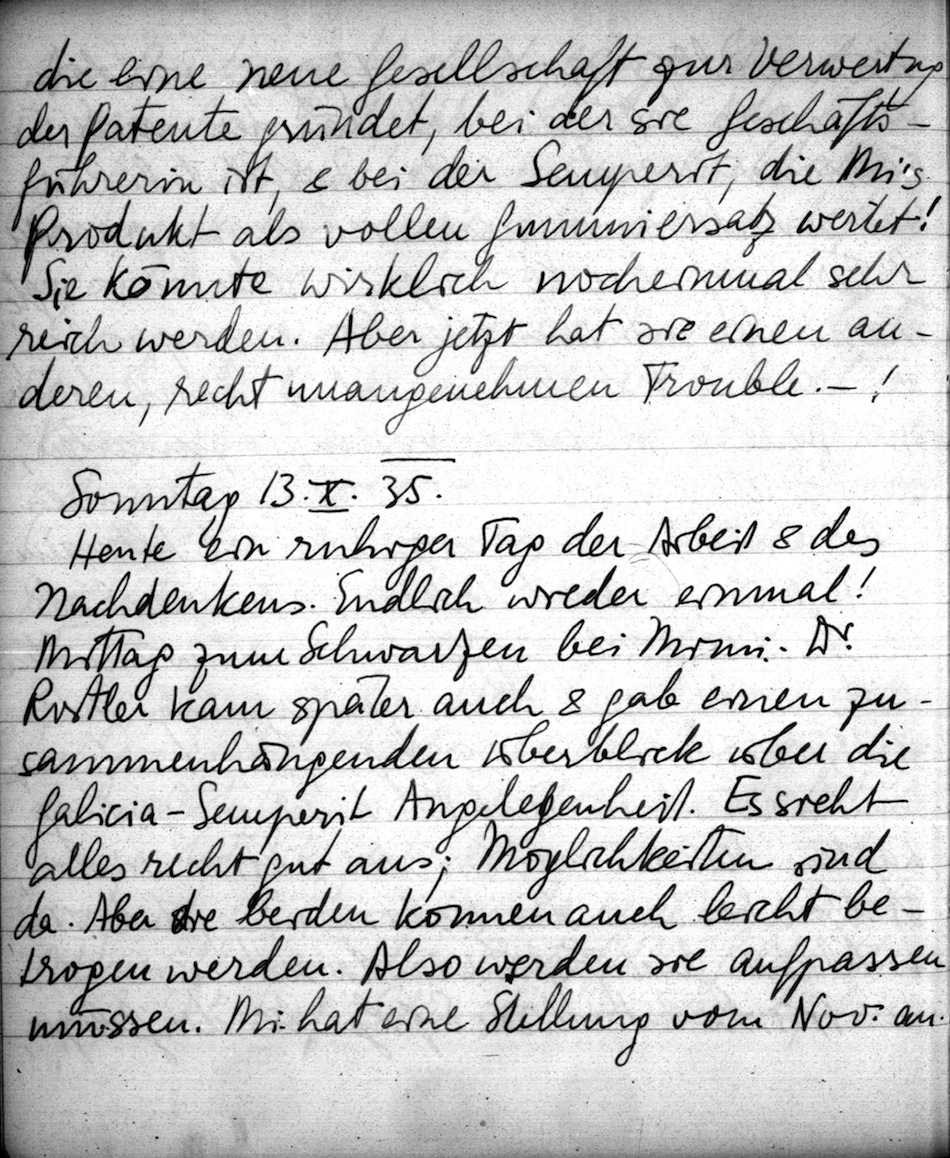 die eine neue Gesellschaft zur Verwertung
der Patente gründet, bei der sie Geschäfts-
führerin ist, & bei der Semperit, die Mi's
Produkt als vollen Gummiersatz wertet!
Sie könnte wirklich nocheinmal sehr
reich werden. Aber jetzt hat sie einen an-
deren, recht unangenehmen Trouble. – !
Sonntag 13. X. 35.
Heute ein ruhiger Tag der Arbeit & des
Nachdenkens. Endlich wieder einmal!
Mittag zum Schwarzen bei Mimi. Dr.
kam später auch & gab einen zu-
sammenhängenden Überblick über die
Galicia-Semperit Angelegenheit. Es sieht
alles recht gut aus; Möglichkeiten sind
da. Aber die beiden können auch leicht be-
trogen werden. Also werden sie aufpassen
müssen. Mi. hat eine Stellung vom Nov. an.